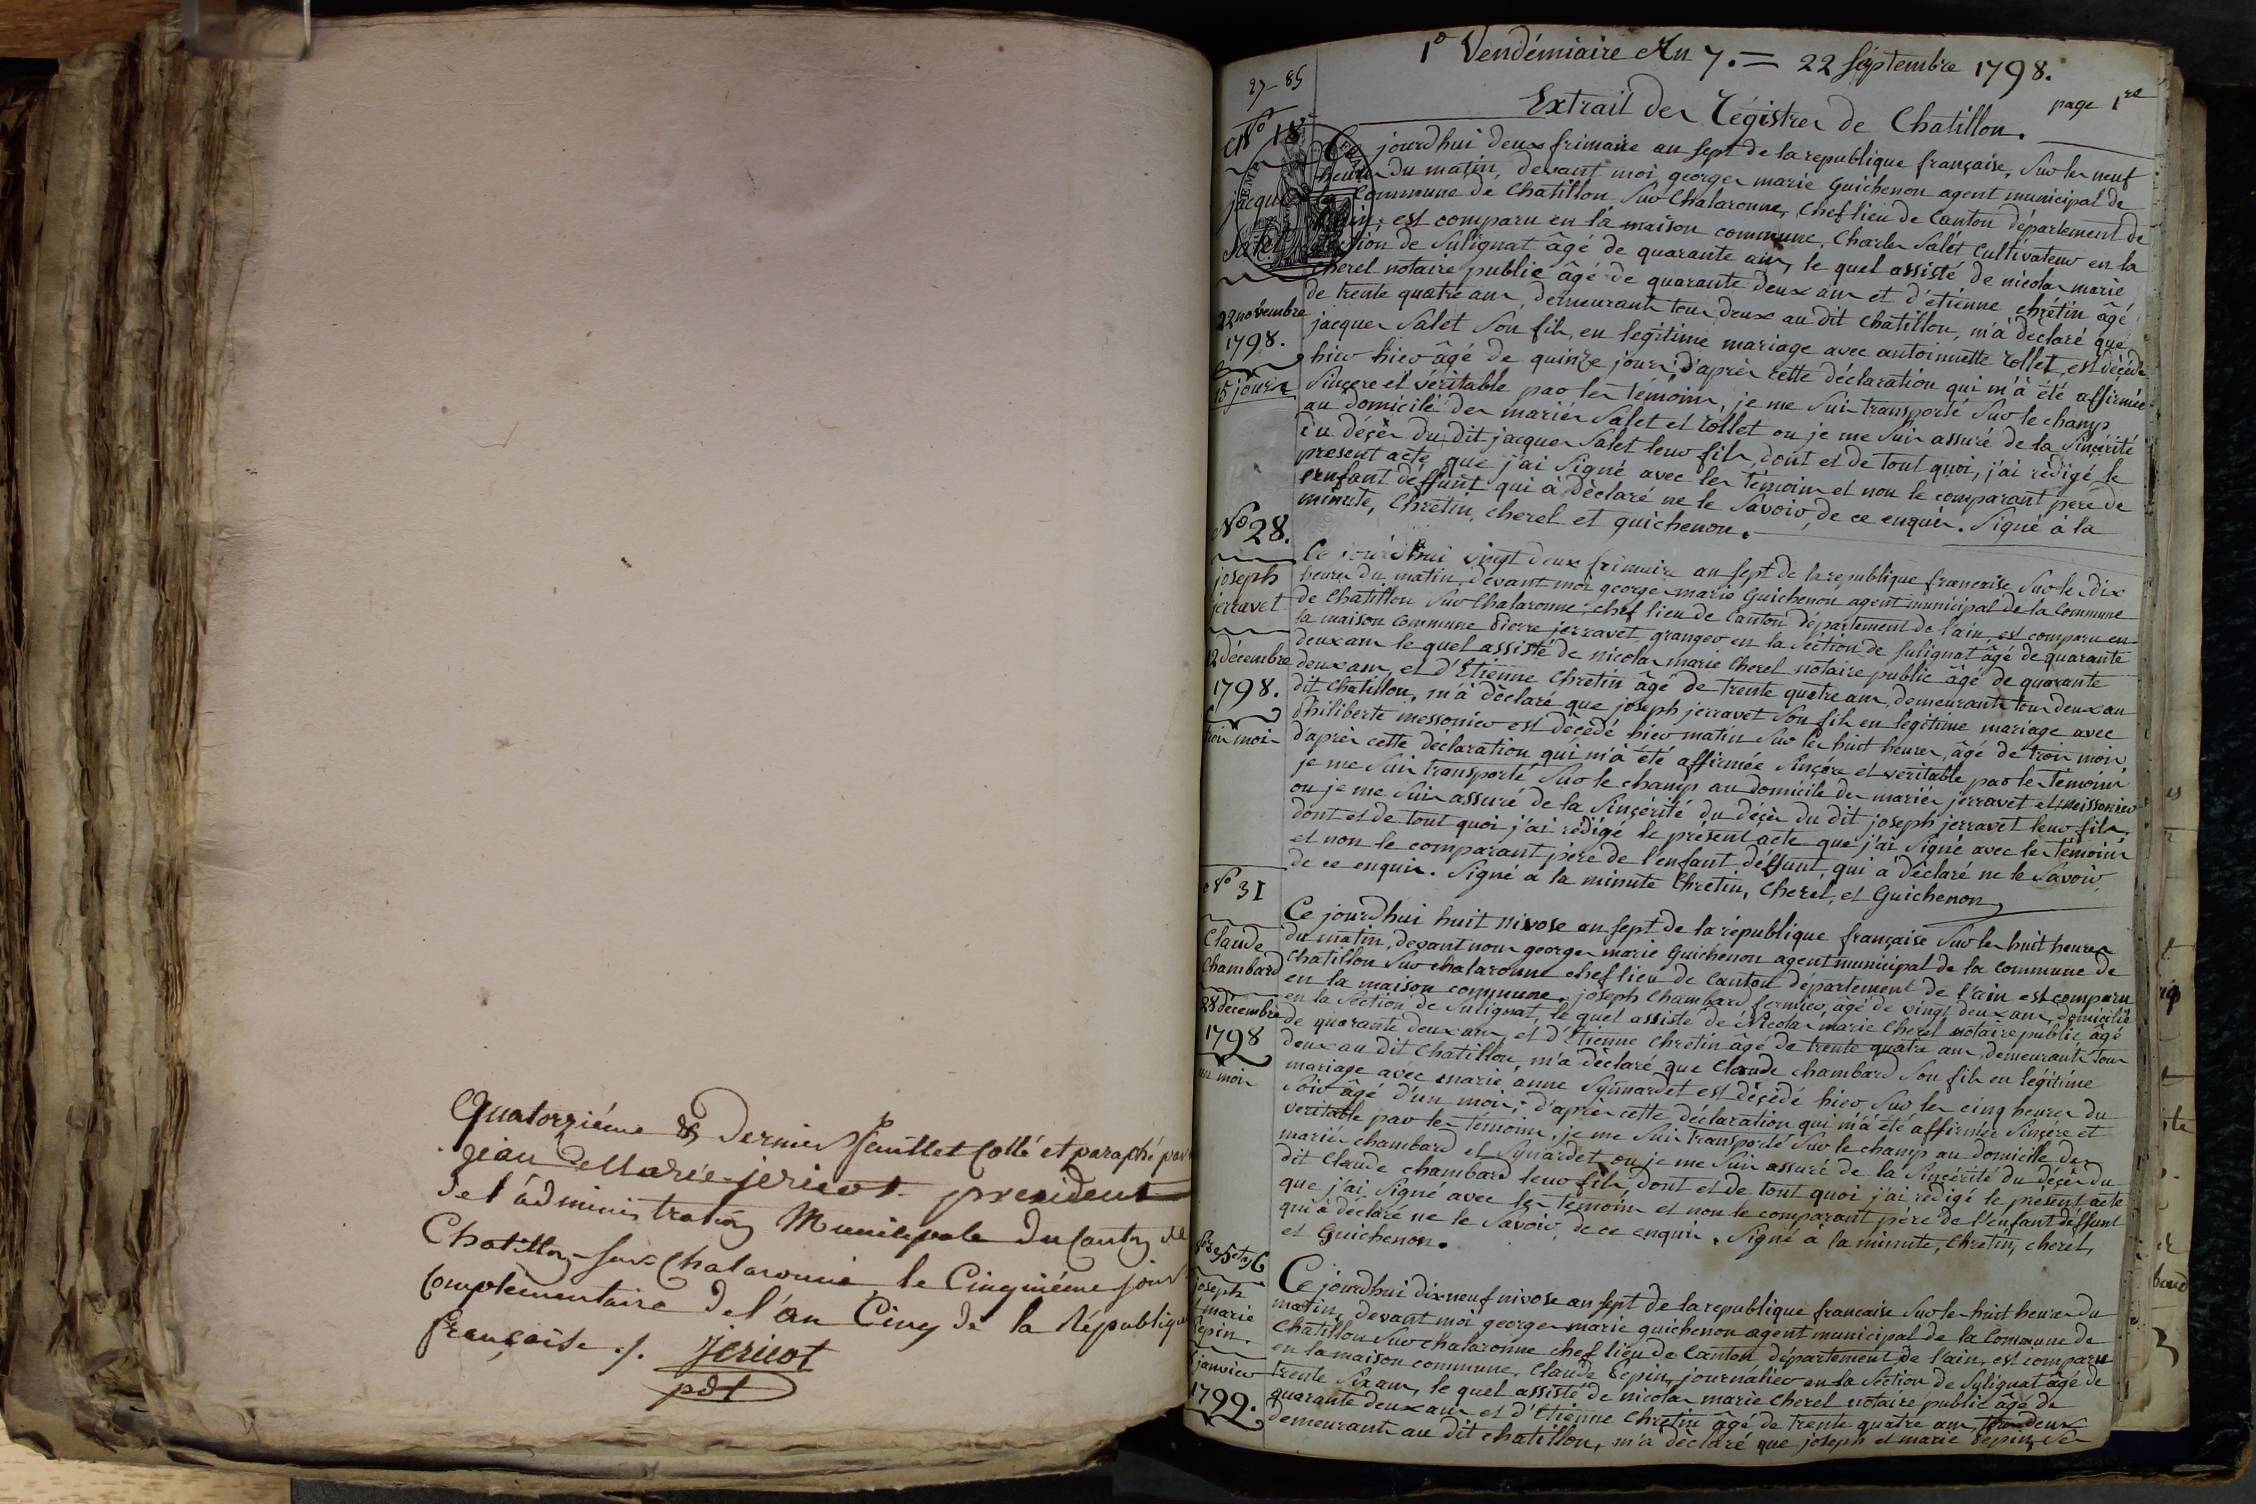 Quatorziéme & Dernier feuillet Collé et paraphé par
jean de Marie jericot president
de l'administration Municipale du Canton de
Chatillon sur Chalaronne le Cinquiéme jour
Complementaire de l'an Cinq de la République
française ./. Jericot
pdt
1º Vendémiaire An 7. = 22 Septembre 1798.
27-85
page 1re
Extrait des Régistres de Chatillon.
Nº 18
jacques
Salet
22 novembre
1798.
15 jours
Ce jourdhui deux frimaire an sept de la republique française, sur les neuf
heures du matin, devant moi george marie Guichenon agent municipal de
la Commune de Chatillon sur Chalaronne, Chef lieu de Canton département de
l'ain, est comparu en la maison commune, Charles Salet, Cultivateur en la
section de Sulignat âgé de quarante ans, le quel assisté de nicolas marie
Cherel notaire public âgé de quarante deux ans et d'etienne chrétin âgé
de trente quatre ans, demeurants tous deux au dit Chatillon, m'a déclaré que
jacques Salet son fils, en legitime mariage avec antoinette rollet, est décédé
hier hier âgé de quinze jours, d'après cette déclaration qui m'à été affirmée
sincere et véritable par les témoins, je me suis transporté sur le champ
au domicile des mariés Salet et rollet ou je me suis assuré de la sincérité
du décès du dit jacques Salet leur fils, dont et de tout quoi, j'ai rédigé le
present acte que j'ai signé avec les témoins et non le comparant pere de
l'enfant déffunt qui à déclaré ne le savoir, de ce enquis. Signé à la
minute, Chretin, cherel et guichenon.
Nº 28.
joseph
jerravet
12 décembre
1798.
trois mois
Ce jourd'hui vingt deux frimaire an sept de la republique francaise, sur les dix
heures du matin, devant moi george marie Guichenon agent municipal de la Commune
de Chatillon sur Chalaronne, chef lieu de Canton département de l'ain, est comparu en
la maison commune Pierre jerravet, granger en la séction de sulignat âgé de quarante
deux ans le quel assisté de nicolas marie Cherel notaire public âgé de quarante
deux ans, et d'Etienne Chretin âgé de trente quatre ans, demeurants tous deux au
dit Chatillon, m'à déclaré que joseph jerravet son fils en legitime mariage avec
Philiberte messonier est décédé hier matin sur les huit heures, âgé de trois mois,
d'après cette déclaration qui m'à été affirmée sincére et veritable par les temoins
je me suis transporté sur le champ au domicile des mariés jerravet et meissonier
ou je me suis assuré de la sincérité du décès du dit joseph jerravet leur fils,
dont et de tout quoi j'ai rédigé le présent acte que j'ai signé avec les temoins
et non le comparant pere de l'enfant déffunt, qui à déclaré ne le savoir,
de ce enquis. Signé à la minute Chretin, Cherel, et Guichenon
Nº 31
Claude
Chambard
28 décembre
1798
un mois
Ce jourdhui huit nivose an sept de la république française sur les huit heures
du matin, devant nous george marie Guichenon agent municipal de la commune de
Chatillon sur chalaronne chef lieu de Canton département de l'ain est comparu
en la maison commune, joseph Chambard fermier, âgé de vingt deux ans, domicilié
en la séction de Sulignat, le quel assisté de Nicolas marie Cherel notaire public âgé
de quarante deux ans et d'Etienne Chretin âgé de trente quatre ans, demeurants tous
deux au dit Chatillon, m'a déclaré que Claude chambard son fils en légitime
mariage avec marie anne Synnardet est décédé hier sur les cinq heures du
soir âgé d'un mois ; d'après cette déclaration qui m'a été affirmée sincére et
veritable par les témoins, je me suis transporté sur le champ au domicile des
mariés chambard et Synardet ou je me suis assuré de la sincérité du décès du
dit Claude chambard leur fils, dont et de tout quoi j'ai rédigé le présent acte
que j'ai signé avec les témoins et non le comparant pére de l'enfant déffunt
qui à déclaré ne le savoir, de ce enquis. Signé à la minute, Chretin, cherel,
et Guichenon.
35 et 36
joseph
et marie
Pepin.
janvier
1799.
Ce jourdhui dix neuf nivose an sept de la republique francaise sur les huit heures du
matin, devant moi george marie guichenon agent municipal de la Commune de
Chatillon sur chalaronne chef lieu de Canton, département de l'ain, est comparu
en la maison commune, Claude Pepin, journalier en la Séction de Sulignat âgé de
trente six ans, le quel assisté de nicolas marie Cherel notaire public âgé de
quarante deux ans et d'Etienne Chretin âgé de trente quatre ans, tous deux
demeurants au dit chatillon, m'à déclaré que joseph et marie Pepin, ses